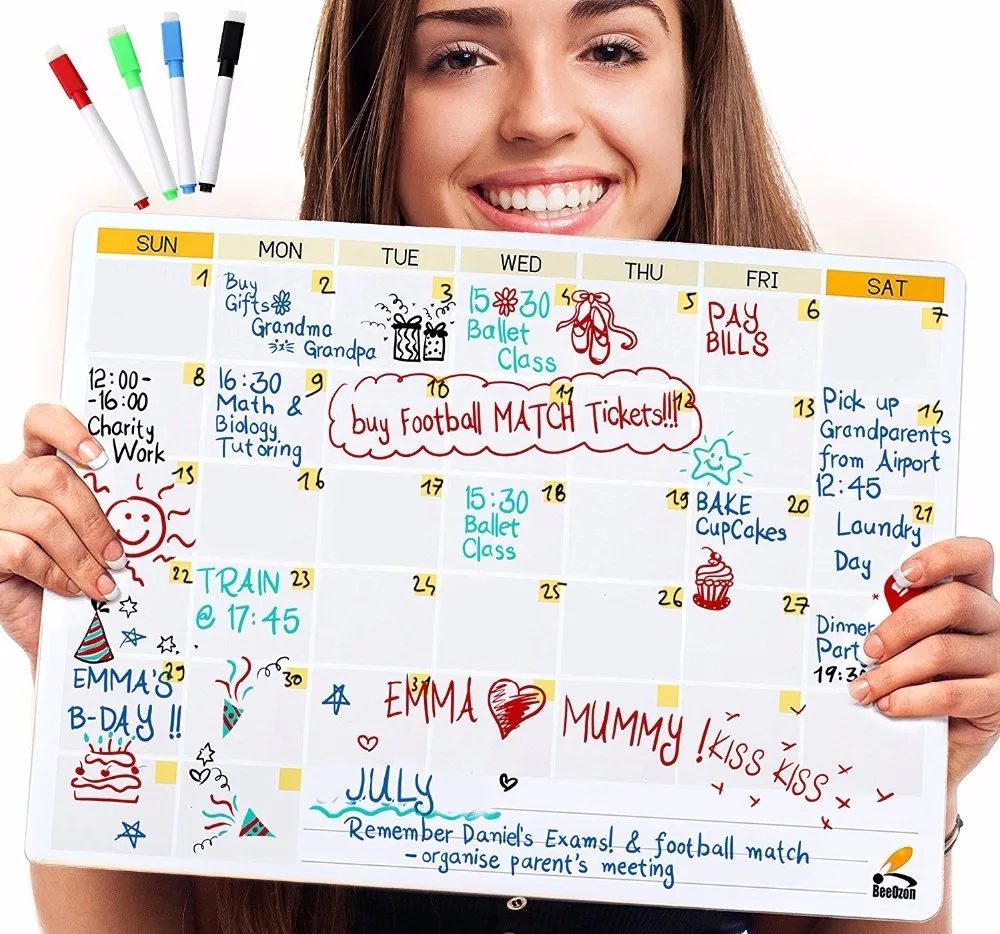 SUN MON TUE WED THU FRI SAT
1 2 3 4 5 6 7
Buy
Gifts
Grandma
Grandpa
15 30
Ballet
Class
PAY
BILLS
8 9 10 11 12 13 14
12:00-
-16:00
Charity
Work
16:30
Math &
Biology
Tutoring
buy Football MATCH Tickets!!!
Pick up
Grandparents
from Airport
12:45
15 16 17 18 19 20 21
15:30
Ballet
Class
BAKE
CupCakes
Laundry
Day
22 23 24 25 26 27
TRAIN
@ 17:45
Dinner
19:3
29 30 31
EMMA'S
B-DAY !!
EMMA MUMMY! KISS KISS
JULY
Remember Daniel's Exams! & football match
-organise parent's meeting
BeeOzon